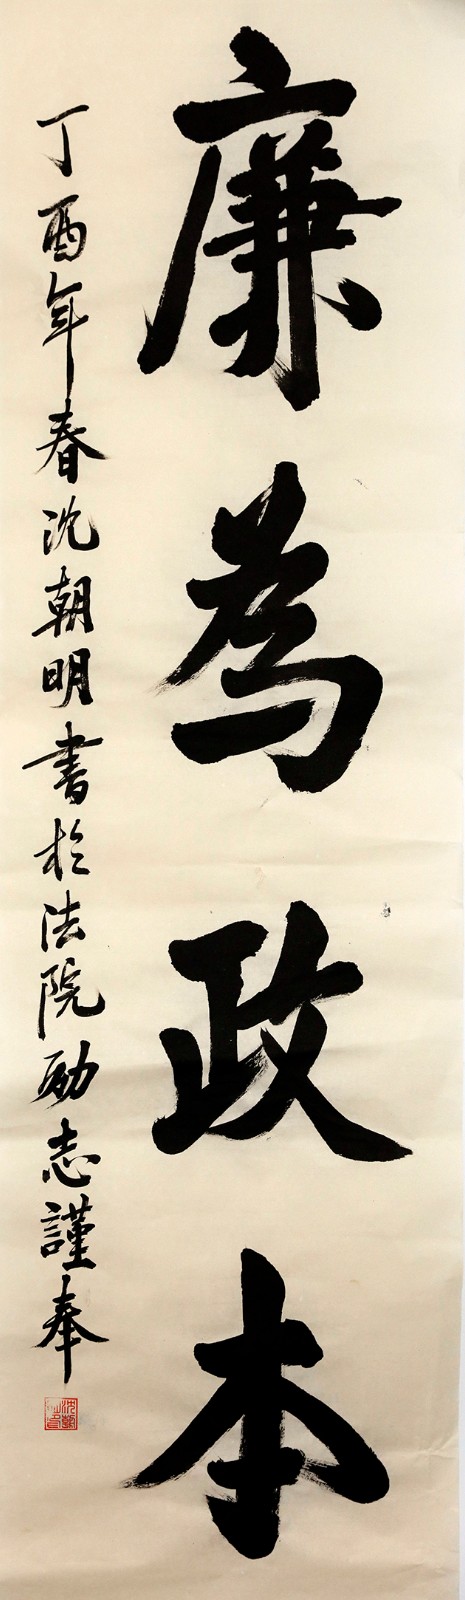 廉為政本
丁酉年春沈朝明書於法院励志謹奉